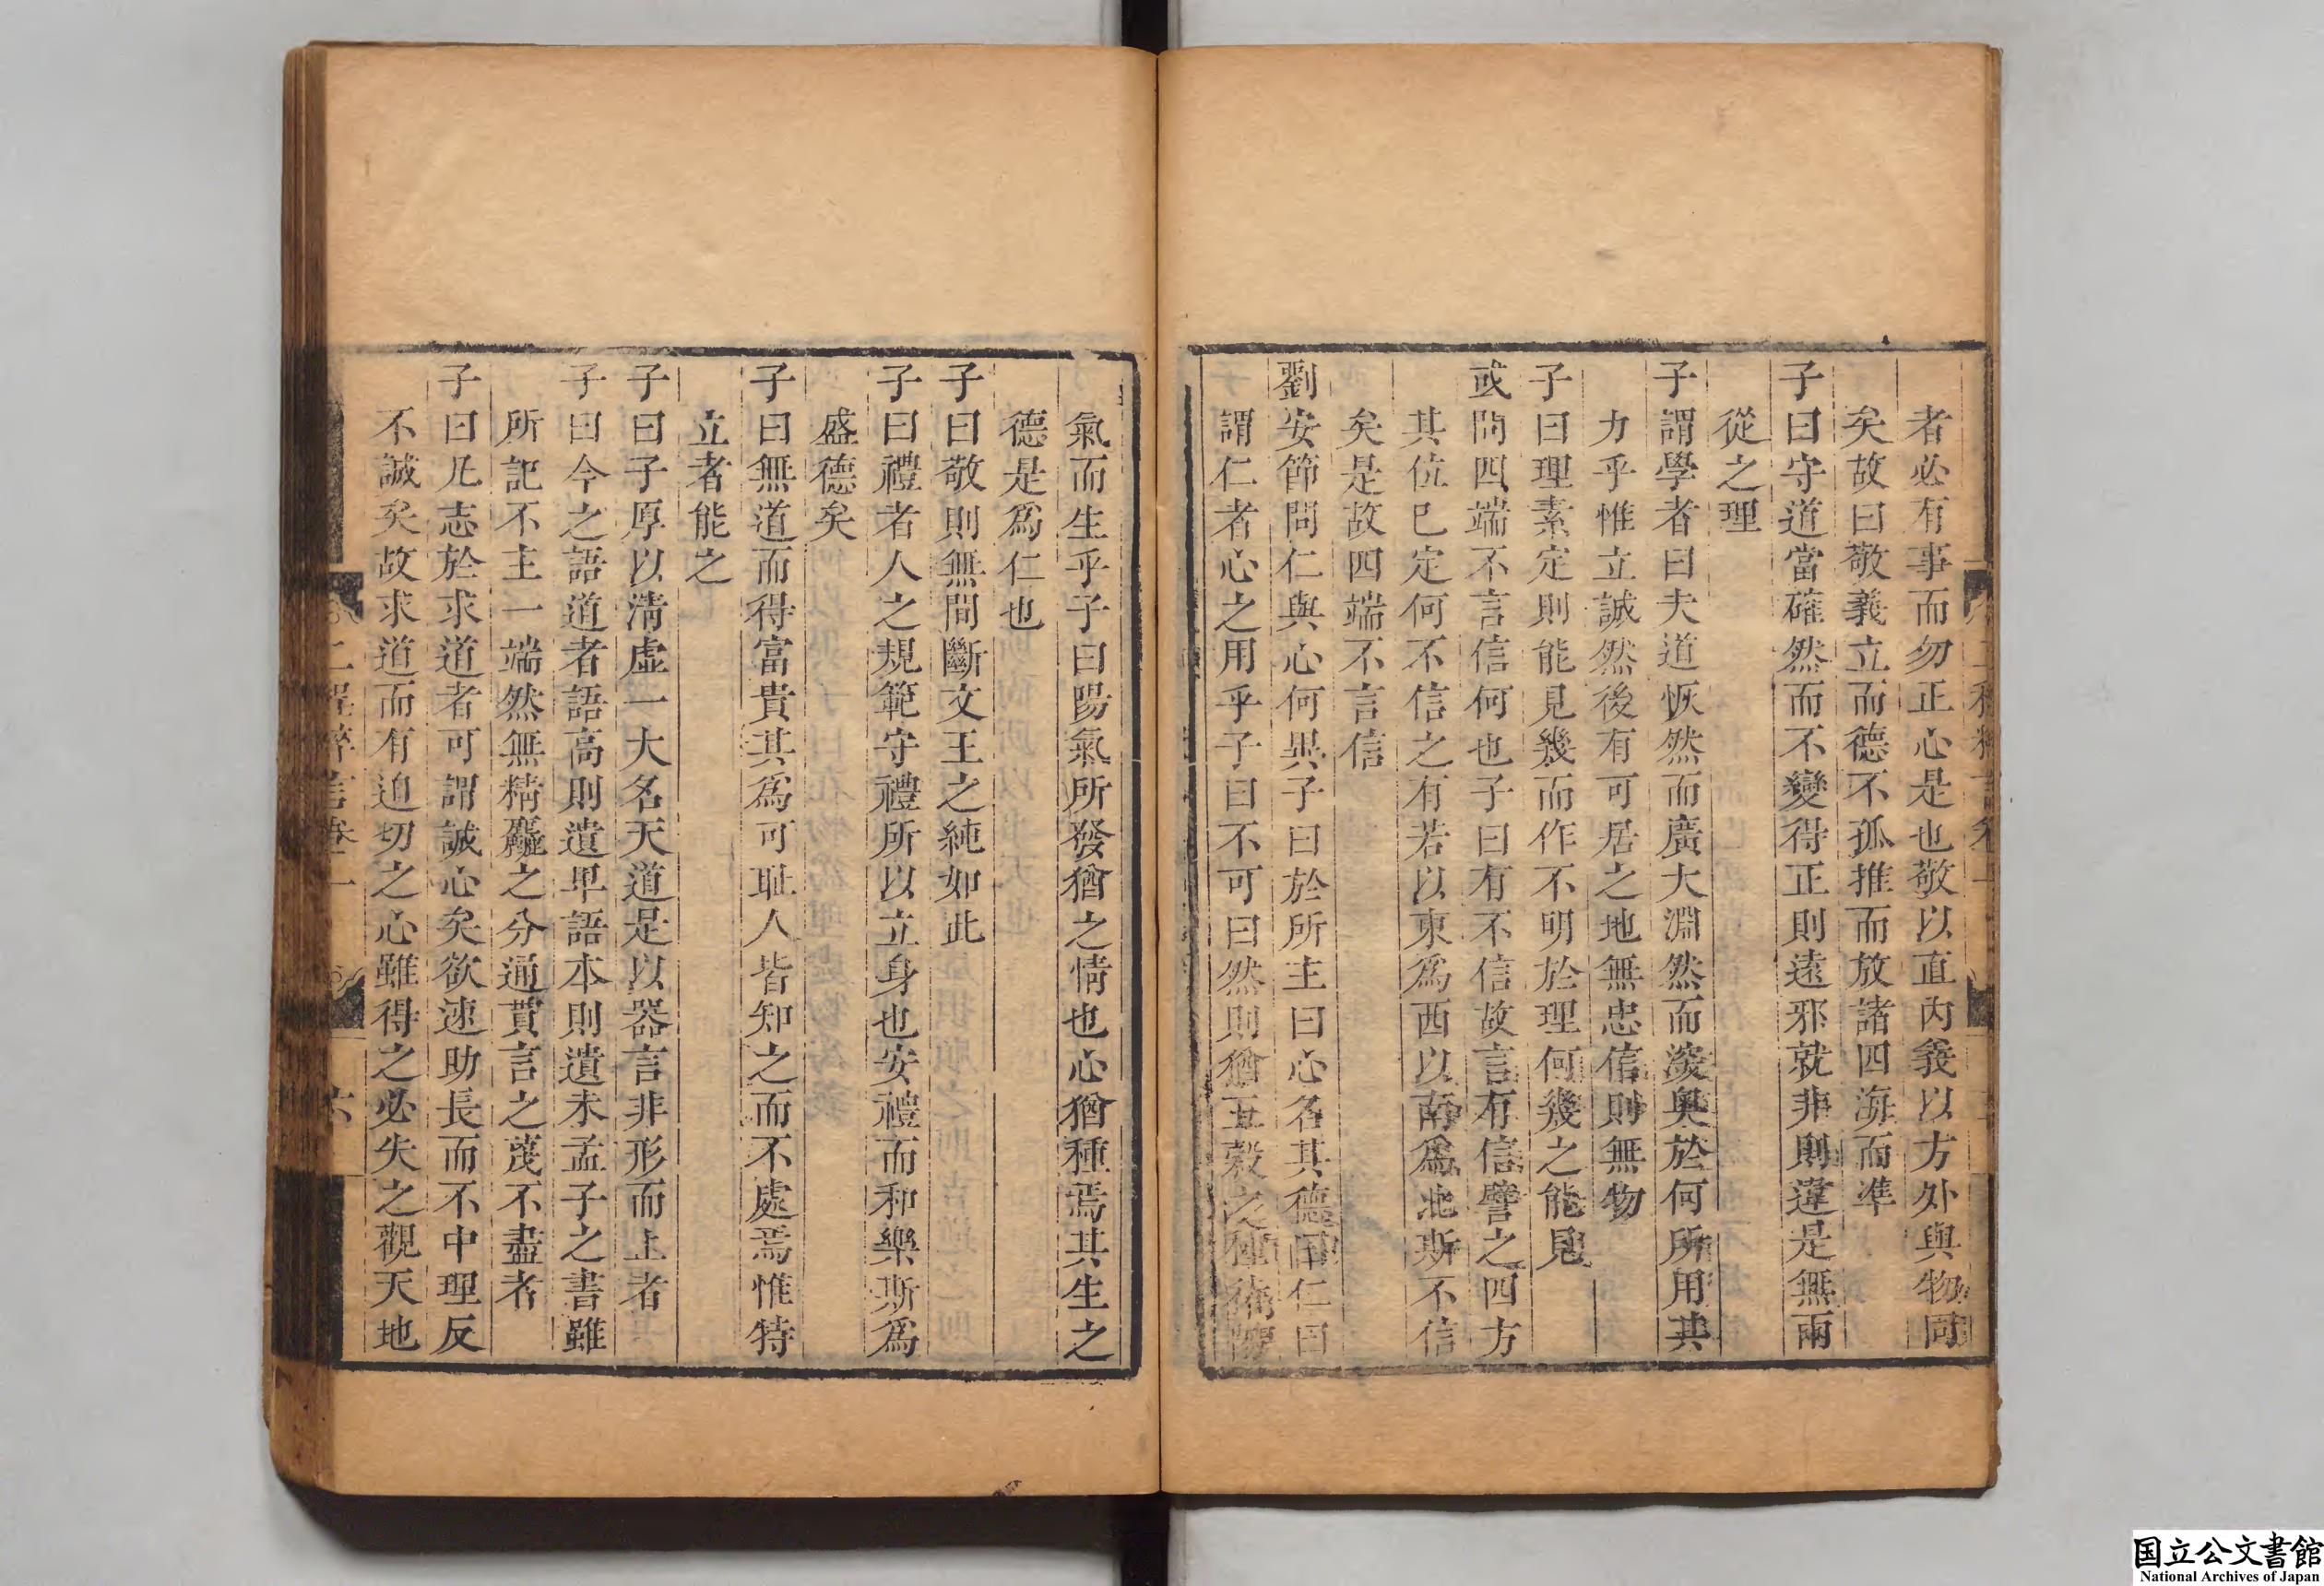 者必有事而勿正心是也敬以直內義以方外與物同
矣故曰敬義立而德不孤推而放諸四海而準
子曰守道當確然而不變得正則遠邪就非則違是無兩
從之理
子謂學者曰夫道恢然而廣大淵然而深奧於何所用其
力乎惟立誠然後有可居之地無忠信則無物
子曰理素定則能見幾而作不明於理何幾之能見
或問四端不言信何也子曰有不信故言有信譬之四方
其位已定何不信之有若以東爲西以南爲北斯不信
矣是故四端不言信
劉安節問仁與心何異子曰於所主曰心名其德曰仁曰
謂仁者心之用乎子曰不可曰然則猶五穀之種待陽
氣而生乎子曰陽氣所發猶之情也心猶種焉其生之
德是爲仁也
子曰敬則無間斷文王之純如此
子曰禮者人之規範守禮所以立身也安禮而和樂斯爲
盛德矣
子曰無道而得富貴其爲可耻人皆知之而不處焉惟特
立者能之
子曰子厚以淸虛一大名天道是以器言非形而上者
子曰今之語道者語高則遺卑語本則遺末孟子之書雖
所記不主一端然無精麤之分通貫言之蔑不盡者
子曰凡志於求道者可謂誠心矣欲速助長而不中理反
不誠矣故求道而有迫切之心雖得之必失之觀天地
二程粹言卷一
六
国立公文書館
National Archives of Japan